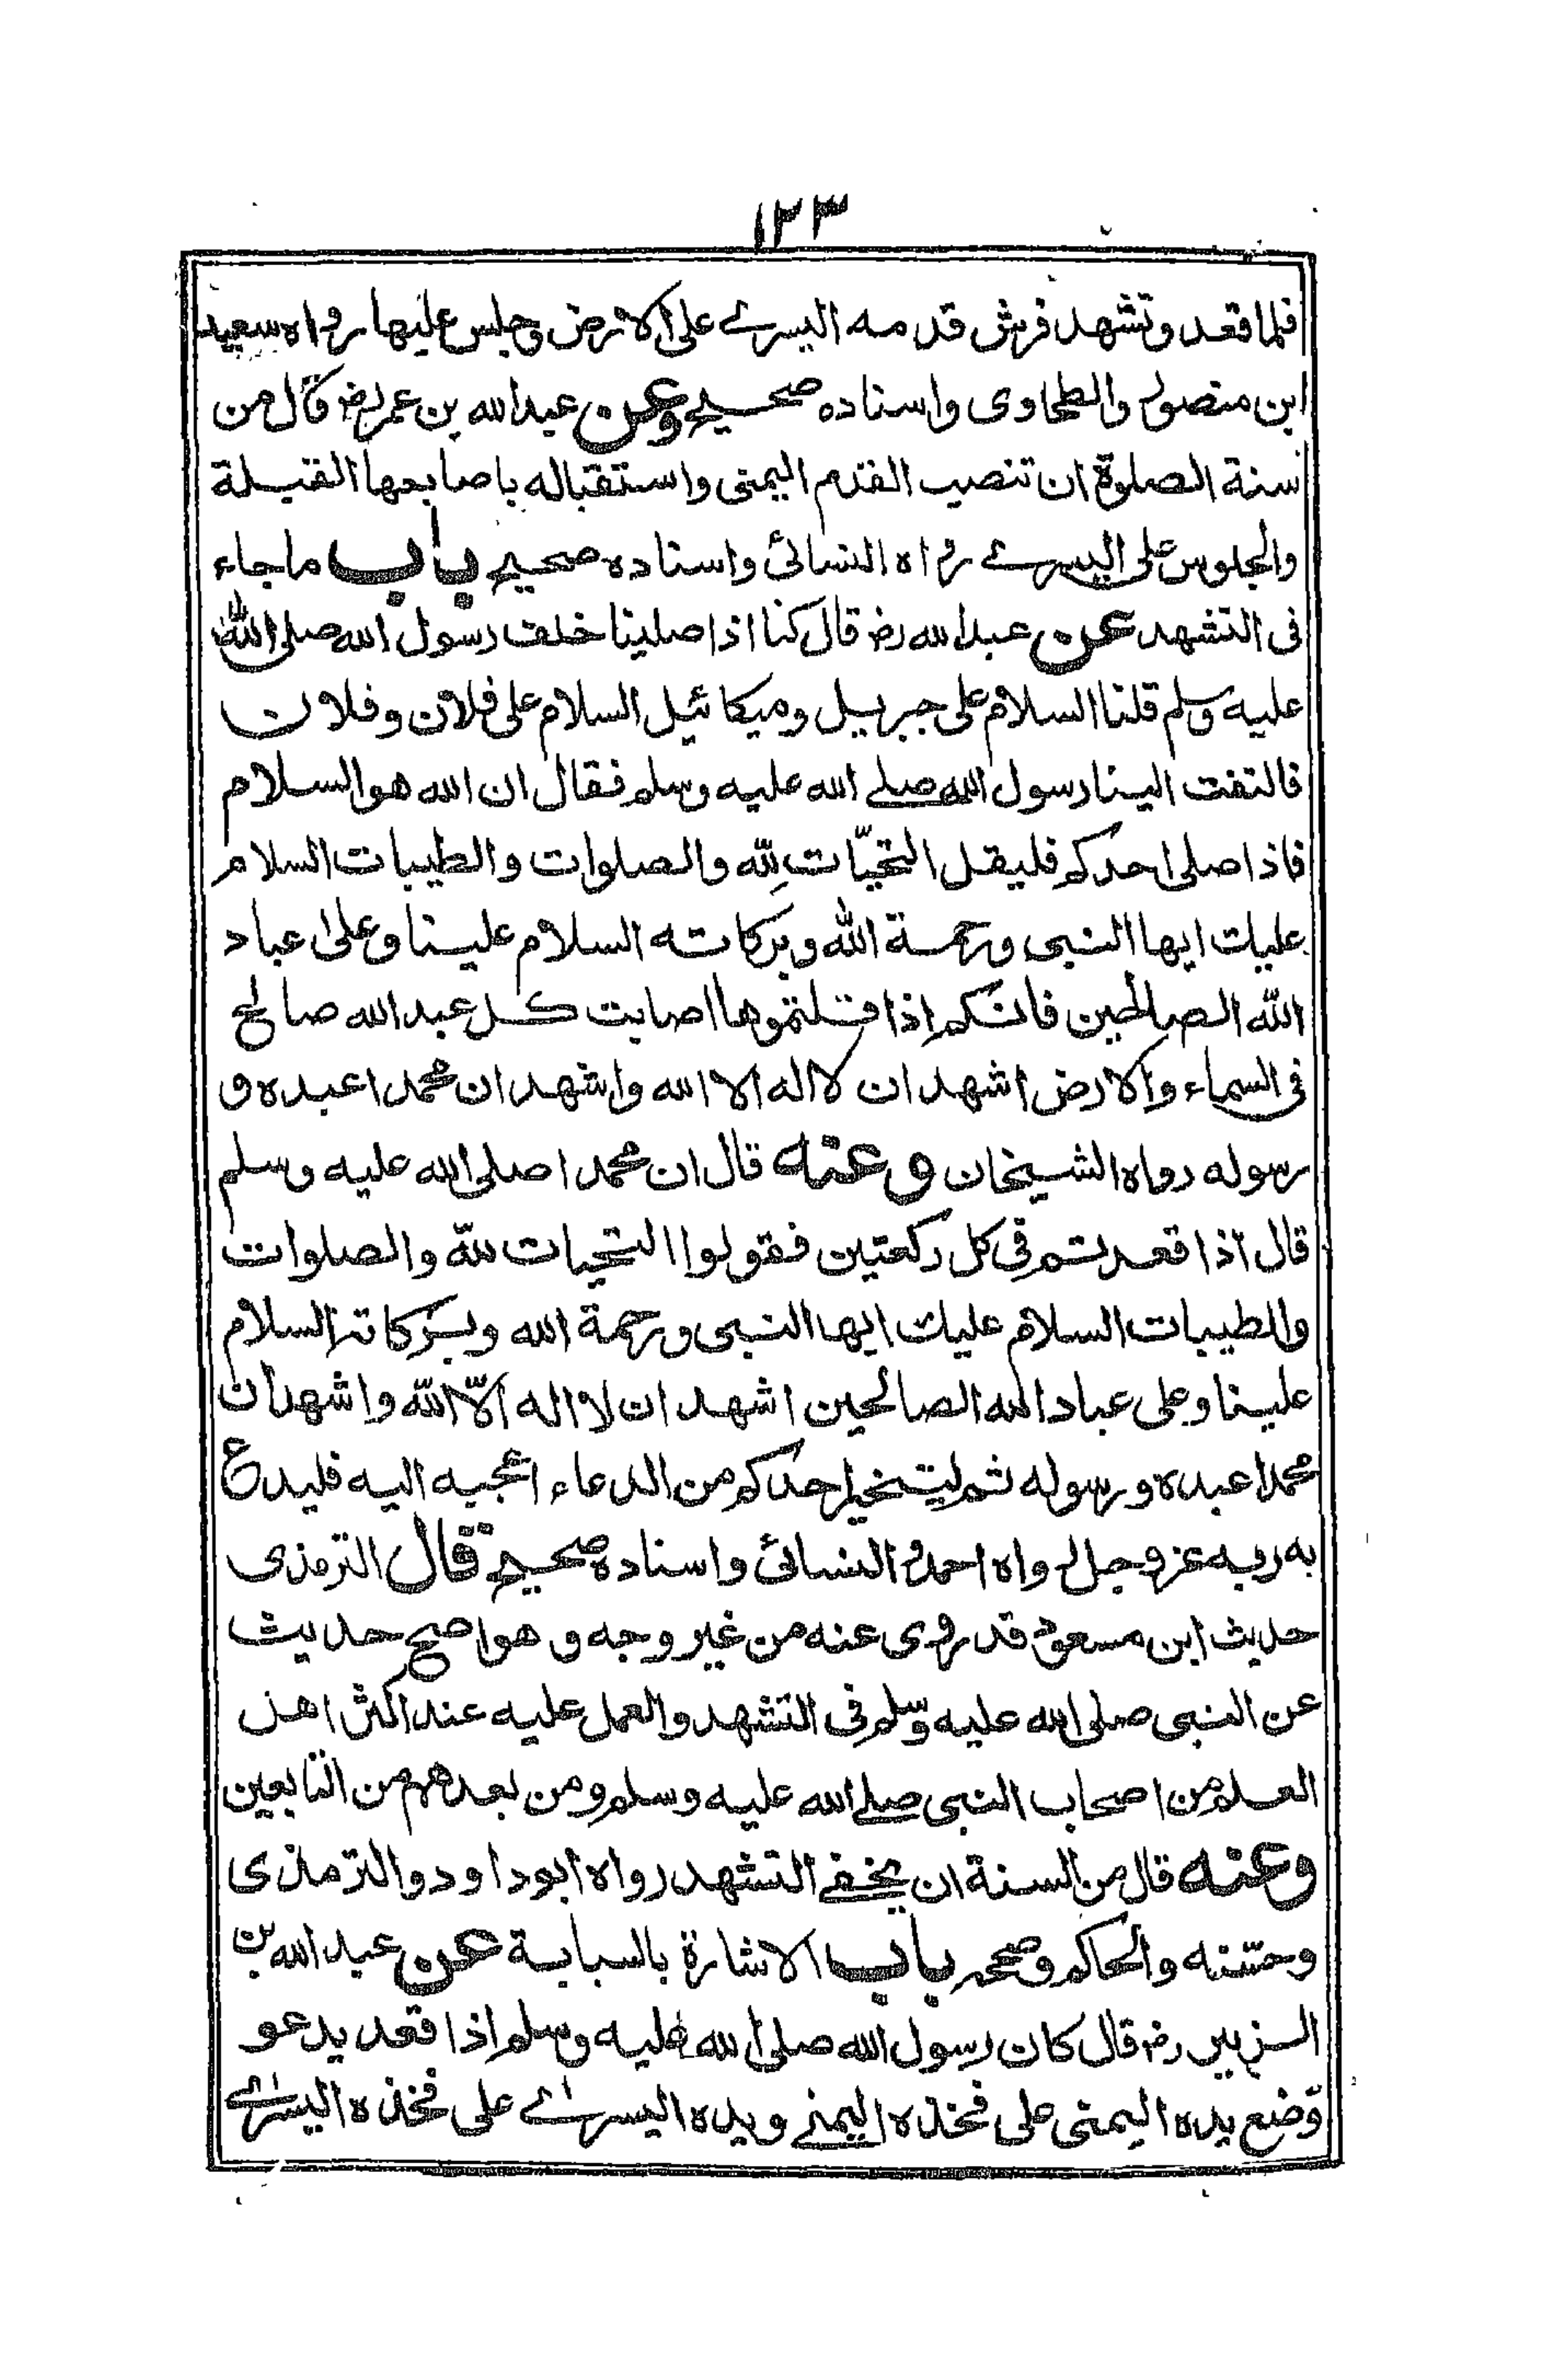 ١٢٣
فلما قعد وتشهد فرش قدمه اليسرے على الارض وجلس عليها رواه سعيد
ابن منصور والطحاوى واسناده صحيح وعن عبد الله بن عمر رض قال من
سنة الصلوة ان تنصب القدم اليمنى واستقباله باصابعها القبلة
والجلوس على اليسرے رواه النسائى واسناده صحيح باب ما جاء
فى التشهد عن عبد الله رض قال كنا اذا صلينا خلف رسول الله صلى الله
عليه وسلم قلنا السلام على جبريل وميكائيل السلام على فلان وفلان
فالتفت الينا رسول الله صلے الله عليه وسلم فقال ان الله هو السلام
فاذا صلى احدكم فليقل التحيّات لله والصلوات والطيبات السلام
عليك ايها النبى ورحمة الله وبركاته السلام علينا وعلى عباد
الله الصالحين فانكم اذا قلتموها اصابت كل عبد الله صالح
فى السماء والارض اشهد ان لا اله الا الله واشهد ان محمدا عبده و
رسوله رواه الشيخان وعنه قال ان محمدا صلى الله عليه وسلم
قال اذا قعدتم فى كل ركعتين فقولوا التحيات لله والصلوات
والطيبات السلام عليك ايها النبى ورحمة الله وبركاته السلام
علينا وعلى عباد الله الصالحين اشهد ان لا اله الّا الله واشهد ان
محمدا عبده ورسوله ثم ليتخير احدكم من الدعاء اعجبه اليه فليدع
به ربه عز وجل رواه احمد و النسائى واسناده صحيح قال الترمذى
حديث ابن مسعود قد روى عنه من غير وجه و هو اصح حديث
عن النبى صلى الله عليه وسلم فى التشهد والعمل عليه عند اكثر اهل
العلم من اصحاب النبى صلے الله عليه وسلم ومن بعدهم من التابعين
وعنه قال من السنة ان يخفے التشهد رواه ابو داود والترمذى
وحسّنه والحاكم وصححه باب الاشارة بالسبابة عن عبد الله بن
الزبير رض قال كان رسول الله صلى الله عليه وسلم اذا قعد يدعو
وضع يده اليمنى على فخذه اليمنے ويده اليسرٰے على فخذه اليسرٰے